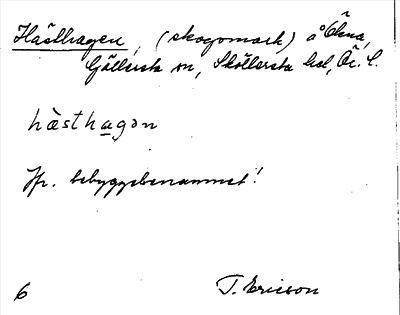 Hästhagen, (skogsmark) å Ökna,
Gällersta sn, Sköllersta hd, Ör. l.
hæsthagən
Jfr. bebyggelsenamnet!
6
T. Ericson